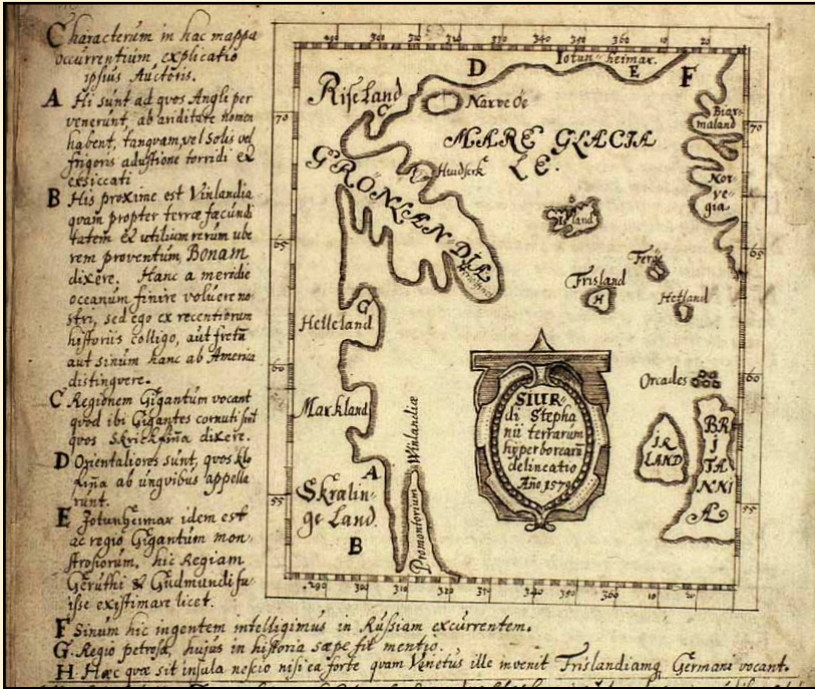 Characterum in hac mappa
occurrentium explicatio
ipsius Auctoris.
A Hi sunt ad quos Angli per
venerunt, ab ariditate nomen
habent, tanquam vel Solis vel
frigoris adustione torridi et
exsiccati
B His proxime est Vinlandia
quam propter terræ fæcundi
tatem et utilium rerum ube
rem proventum, Bonam
dixere. Hanc a meridie
oceanum finire voluere no
stri, sed ego ex recentiorum
historiis colligo, aut fretũ
aut sinum hanc ab America
distinguere.
C Regionem Gigantum vocant
quod ibi Gigantes cornuti sint
quos Skrickfiña dixere.
D Orientaliores sunt, quos klo
fiña ab unguibus appella
runt.
E Jotunheimar idem est
ac regio Gigantum mon-
strosorum, hic Regiam
Geruthi & Gudmundi fu-
isse existimare licet.
F Sinum hic ingentem intelligimus in Rußiam excurrentem.
G. Regio petrosa, hujus in historia sæpe fit mentio.
H. Hæc quæ sit insula nescio nisi ea forte quam Venetus ille invenit Frislandiamq Germani vocant.
290 300 310 320 330 340 350 360 10 20
D
Jotun-heimar.
E
F
Riseland
C
Narve Oe
Biar-
maland
70
70
MARE GLACIA
LE.
GRONLANDIA
Huidserk
Nor-
ve-
gia
Island
65
65
Ferö
Frisland
H
Hetland
Herjolfsnes
G
Helleland
60
60
Orcades
Markland
SIUR-
di Stepha
nii terrarum
hyperborearũ
delineatio
Año 1570
IR
LAND
BR
I
TA
NNI
A
A
Skralin-
ge Land.
B
Promontorium Winlandiæ
55
55
290 300 310 320 330 340 350 360 10 20